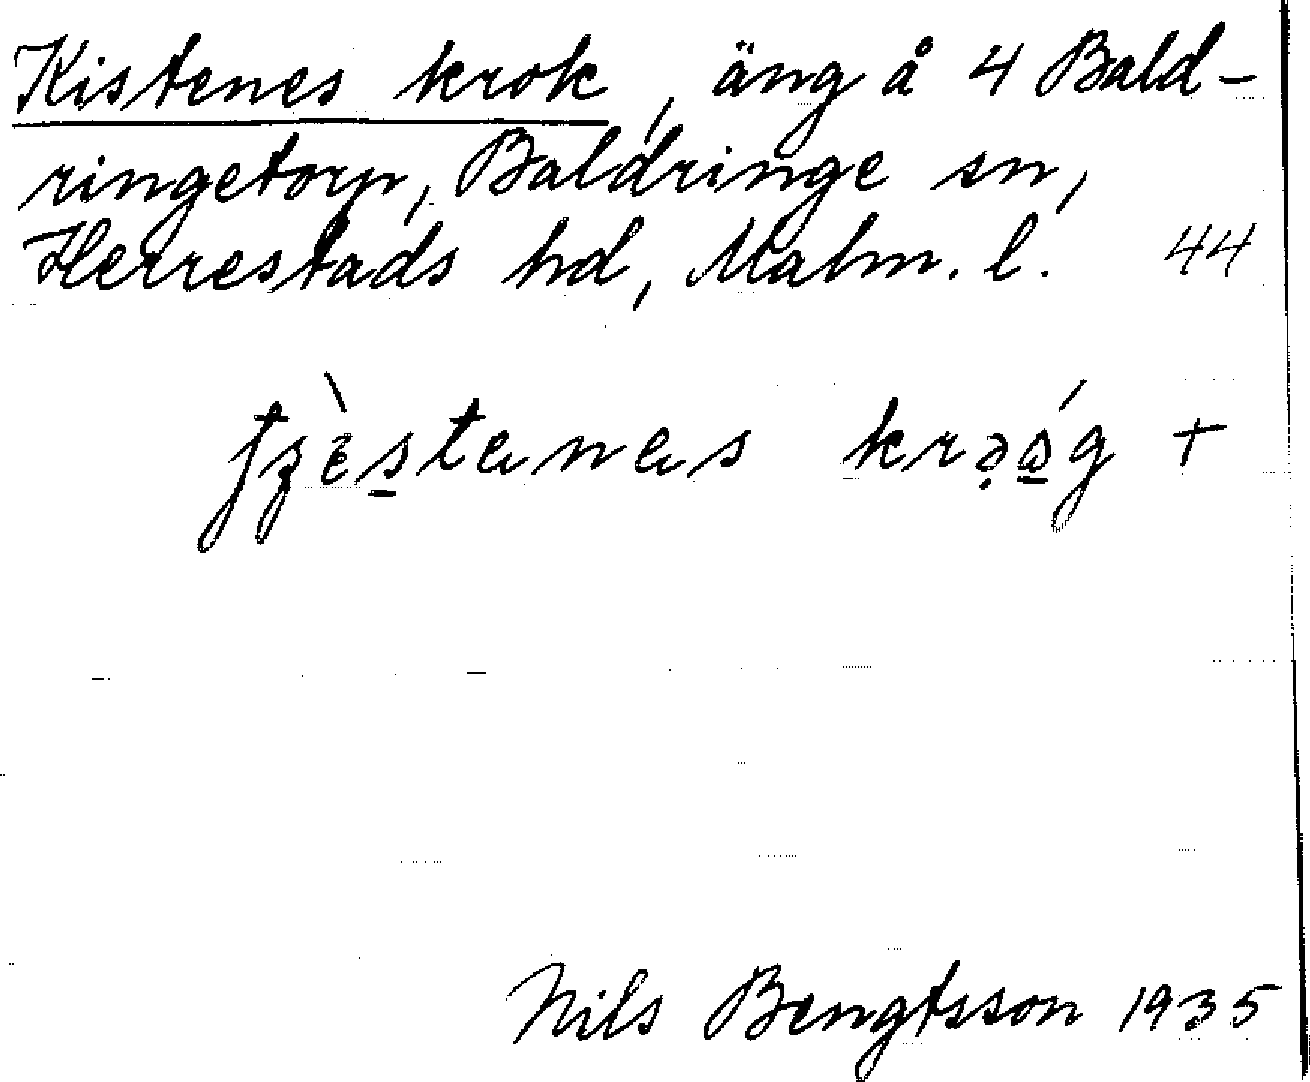 Kistenes krok, äng å 4 Bald-
ringetorp, Baldringe sn,
Herrestads hd, Malm. l. 44
+
Nils Bengtsson 1935